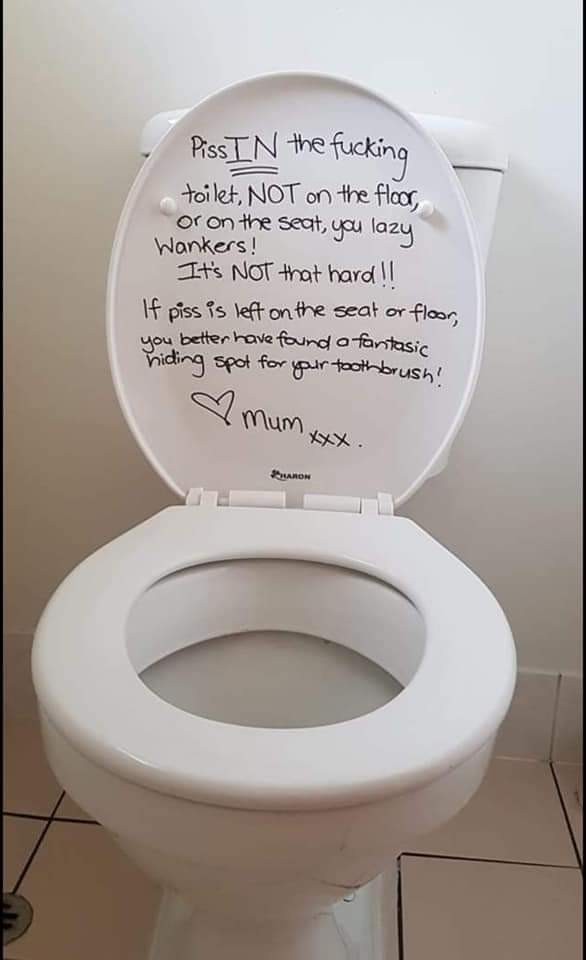 Piss IN the fucking
toilet, NOT on the floor,
or on the seat, you lazy
Wankers!
It's NOT that hard!!
If piss is left on the seat or floor,
you better have found a fantasic
hiding spot for your toothbrush!
♡ mum xxx.
HARON